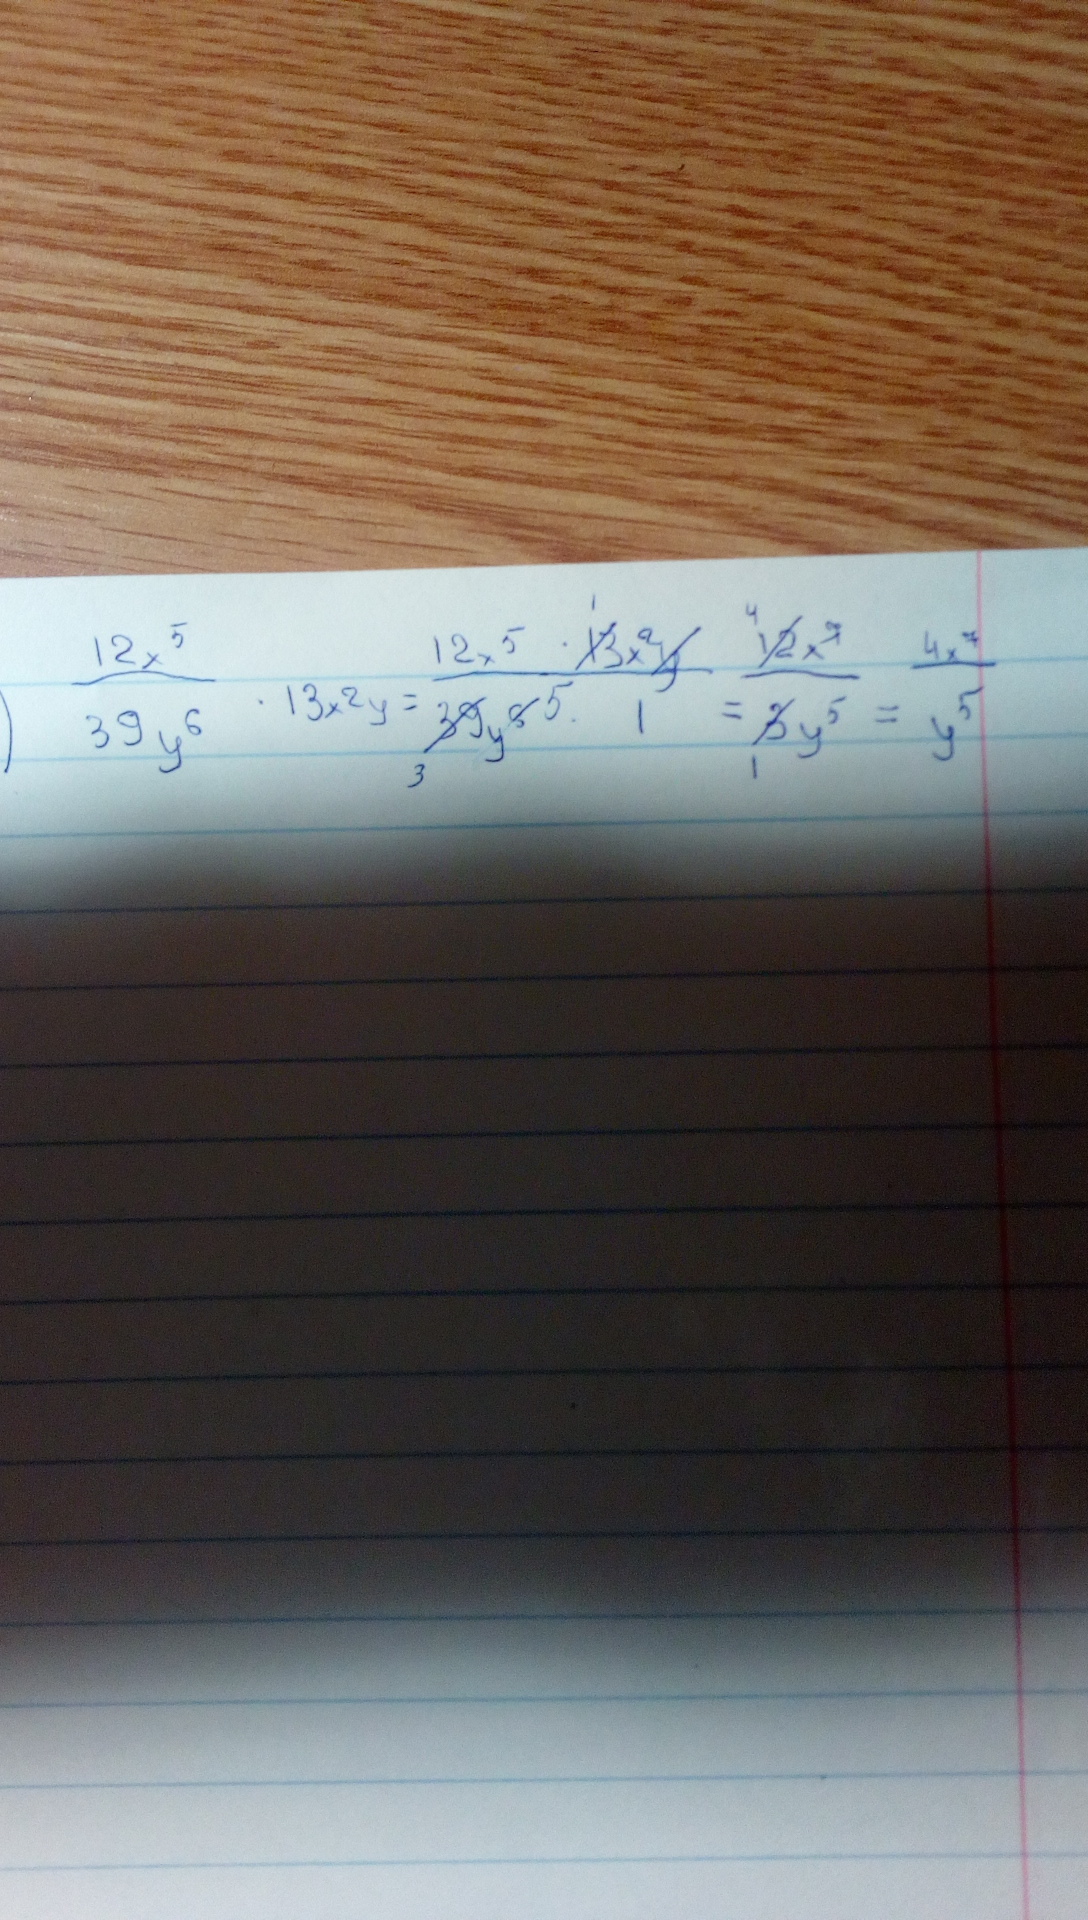 ) 12x⁵/39y⁶ · 13x²y = 12x⁵ · 13x²y/39y⁶ ⁵ · 1 = 12x⁷/3y⁵ = 4x⁷/y⁵